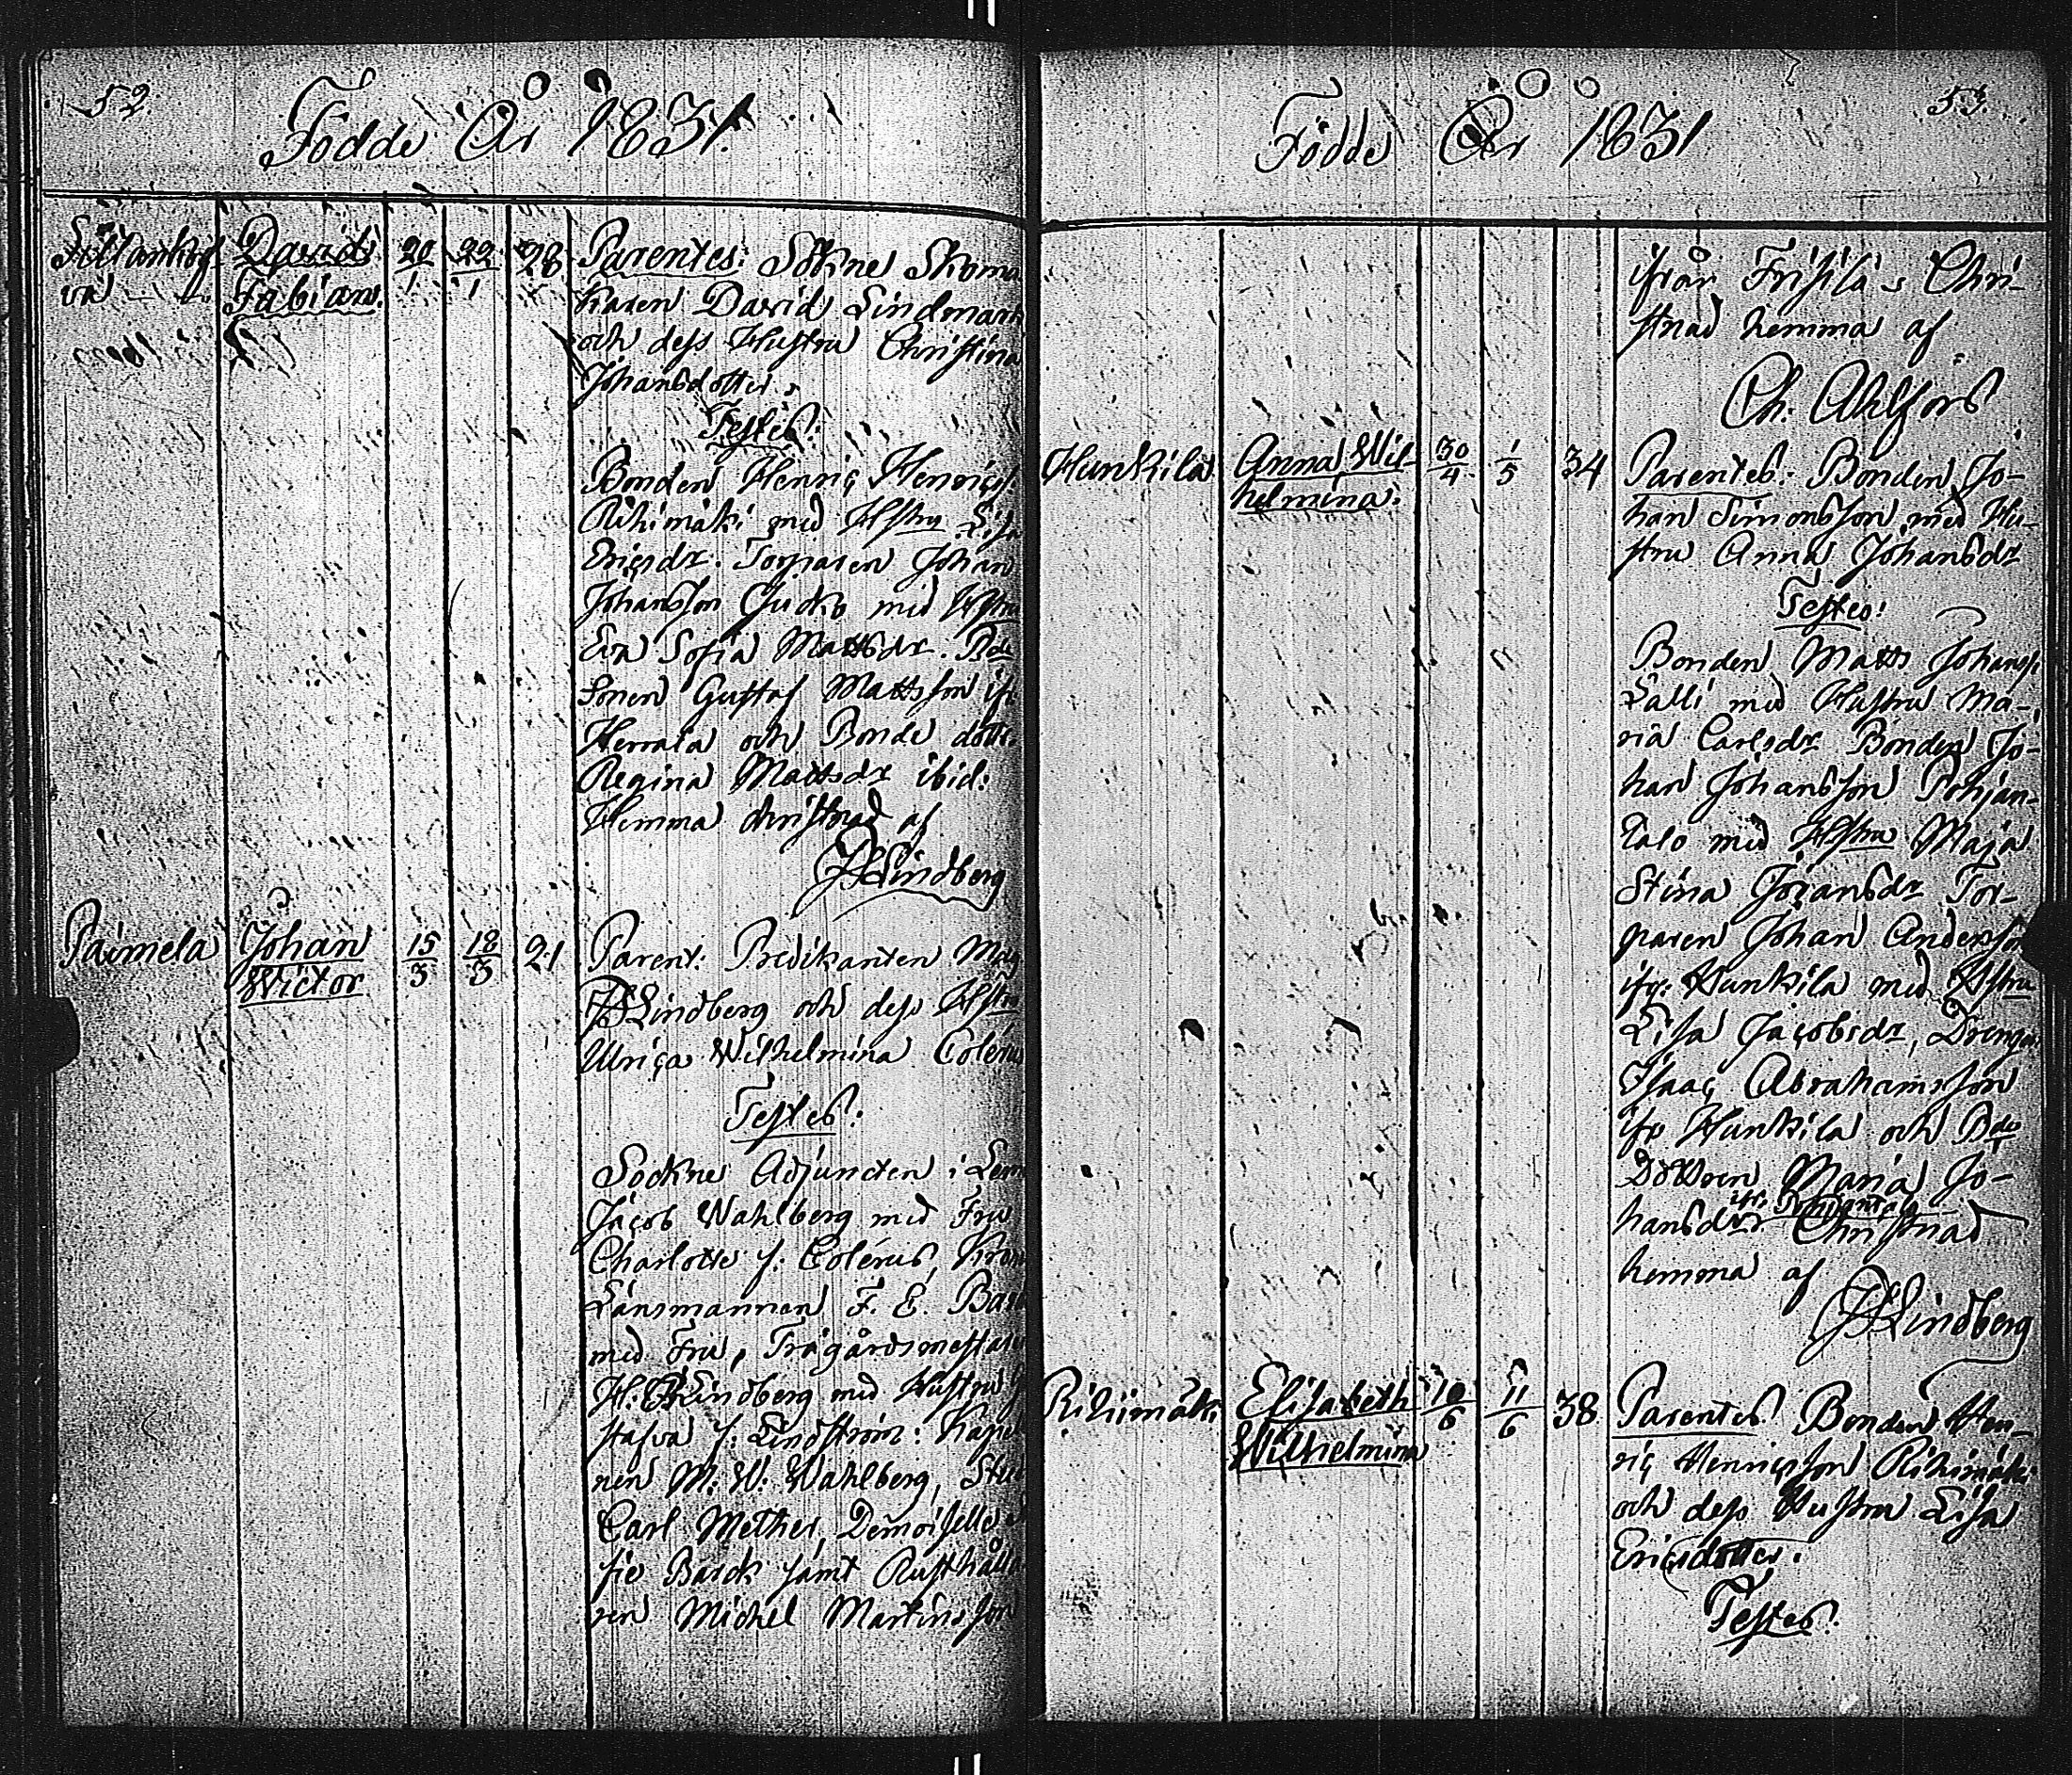 52.
Födde År 1831.
David 20/1 22/1 28 Parentes: Sokne Skoma
Fabian.
karen David Lindmark
och dess Hustru Christina
Johansdotter.
Testes:
Bonden Henriç Henriçs:
Rihimäki med Hstru Lisa
Eriçsdr. Torparen Johan
Johansson med Hstru
Eva Sofia Mattsdr. Bde
Sonen Gustaf Mattsson ifr
Herrala och Bonde dottr
Regina Mattsdr ibid:
Hemma christnad af
Lindberg
Paimela Johan Victor 15/3 18/3 21 Parent: Predikanten Mag
Lindberg och dess Hstru
Ulriça Wilhelmina Colérus
Testes:
Sockne Adjuncten i Lem
Jacob Wahlberg med Fru
Charlotte f: Colérus, Kron
Länsmannen F. E. Bar
med Fru, Trägårdsmestar
H: Lindberg med Hustru
stafva f: Lindström: Kape
nen M: W: Wahlberg, Stu
Carl Mether, Demoiselle
fie Barck samt Rusthålla
ren Michel Martinsson
53.
Födde År 1831
ifrån Frisila; Chri-
stnad hemma af
Ch: Ahlfors
Hunkila Anna Wil-
helmina. 30/4 1/5 34 Parentes: Bonden Jo-
han Simonsson med Hu-
stru Anna Johansdr
Testes:
Bonden Matts Johanss:
Lalli med Hustru Ma-
ria Carlsdr Bonden Jo-
han Johansson Pohjan-
talo med Hstru Maja
Stina Johansdr Tor-
paren Johan Andersson
ifr: Hunkila med Hstru
Lisa Jacobsdr, Drengen
Isaac Abrahamsson
ifr Hunkila och Bde
Dottren Maria Jo-
hansdr ifr: Christnad
hemma af
Lindberg
Rihimäki Elisabeth
Wilhelmina 10/6 11/6 38 Parentes Bonden Hen-
riç Henriçsson Rihimäki
och dess Hustru Lisa
Eriçsdotter.
Testes: